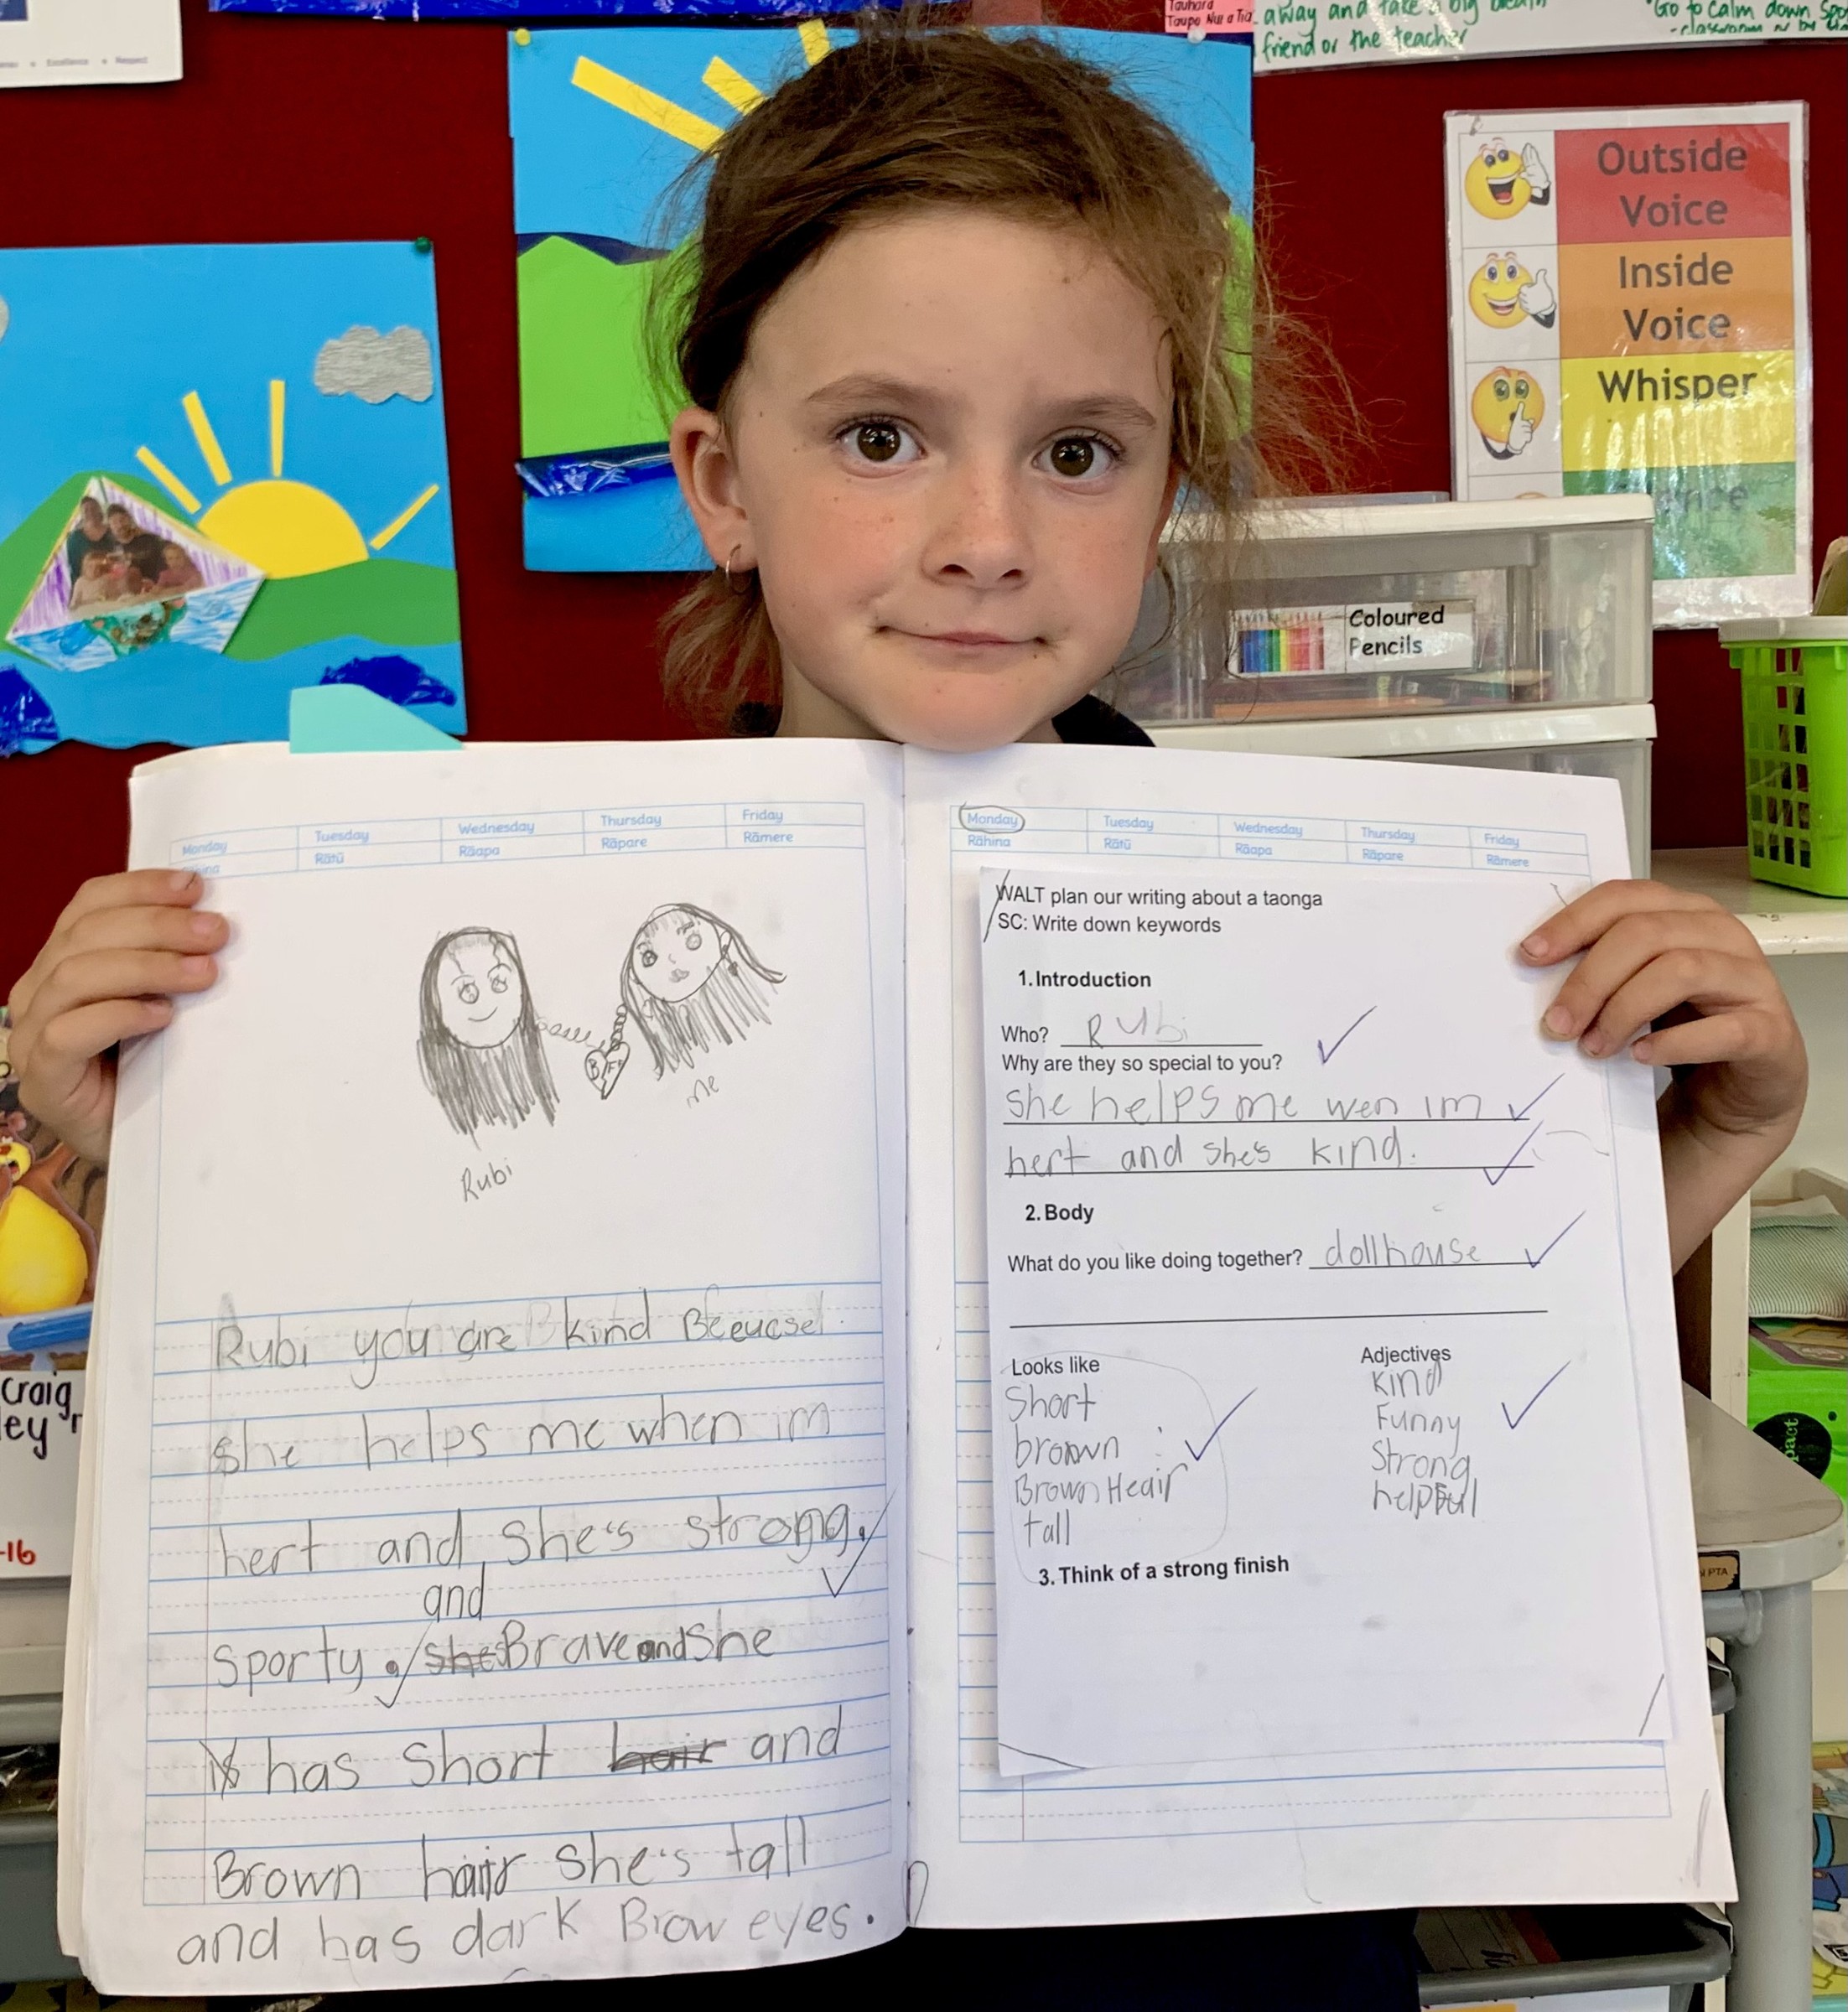 Excellence • Respect
Tauhara
Taupo Nui a Tia
away and take a big breath
friend or the teacher
Go to calm down spot
- classroom or by the
Outside
Voice
Inside
Voice
Whisper
Coloured
Pencils
Monday Tuesday Wednesday Thursday Friday
Rātū Rāapa Rāpare Rāmere
BFF
Rubi
me
Rubi you are kind
she helps me when im
hert and she's strong.
and
sporty. she's Brave and she
has short hair and
Brown hair she's tall
and has dark Brow eyes.
Monday Tuesday Wednesday Thursday Friday
Rāhina Rātū Rāapa Rāpare Rāmere
WALT plan our writing about a taonga
SC: Write down keywords
1. Introduction
Who? Rubi
Why are they so special to you?
she helps me wen im
hert and she's kind.
2. Body
What do you like doing together? dollhouse
Looks like
Short
brown
Brown Heair
tall
Adjectives
kind
Funny
Strong
helpful
3. Think of a strong finish
Craig
ley
-16
PTA
pact